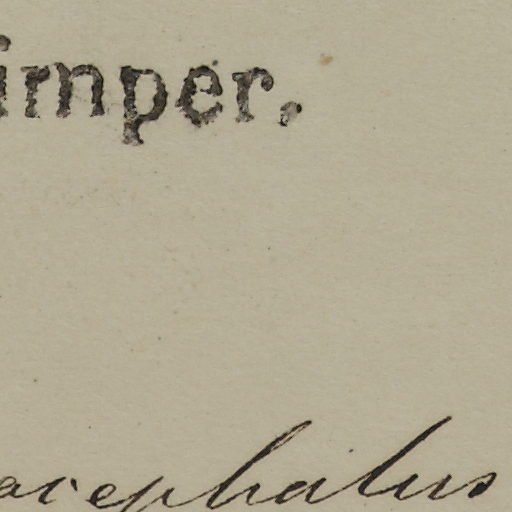 imper.
acephalus